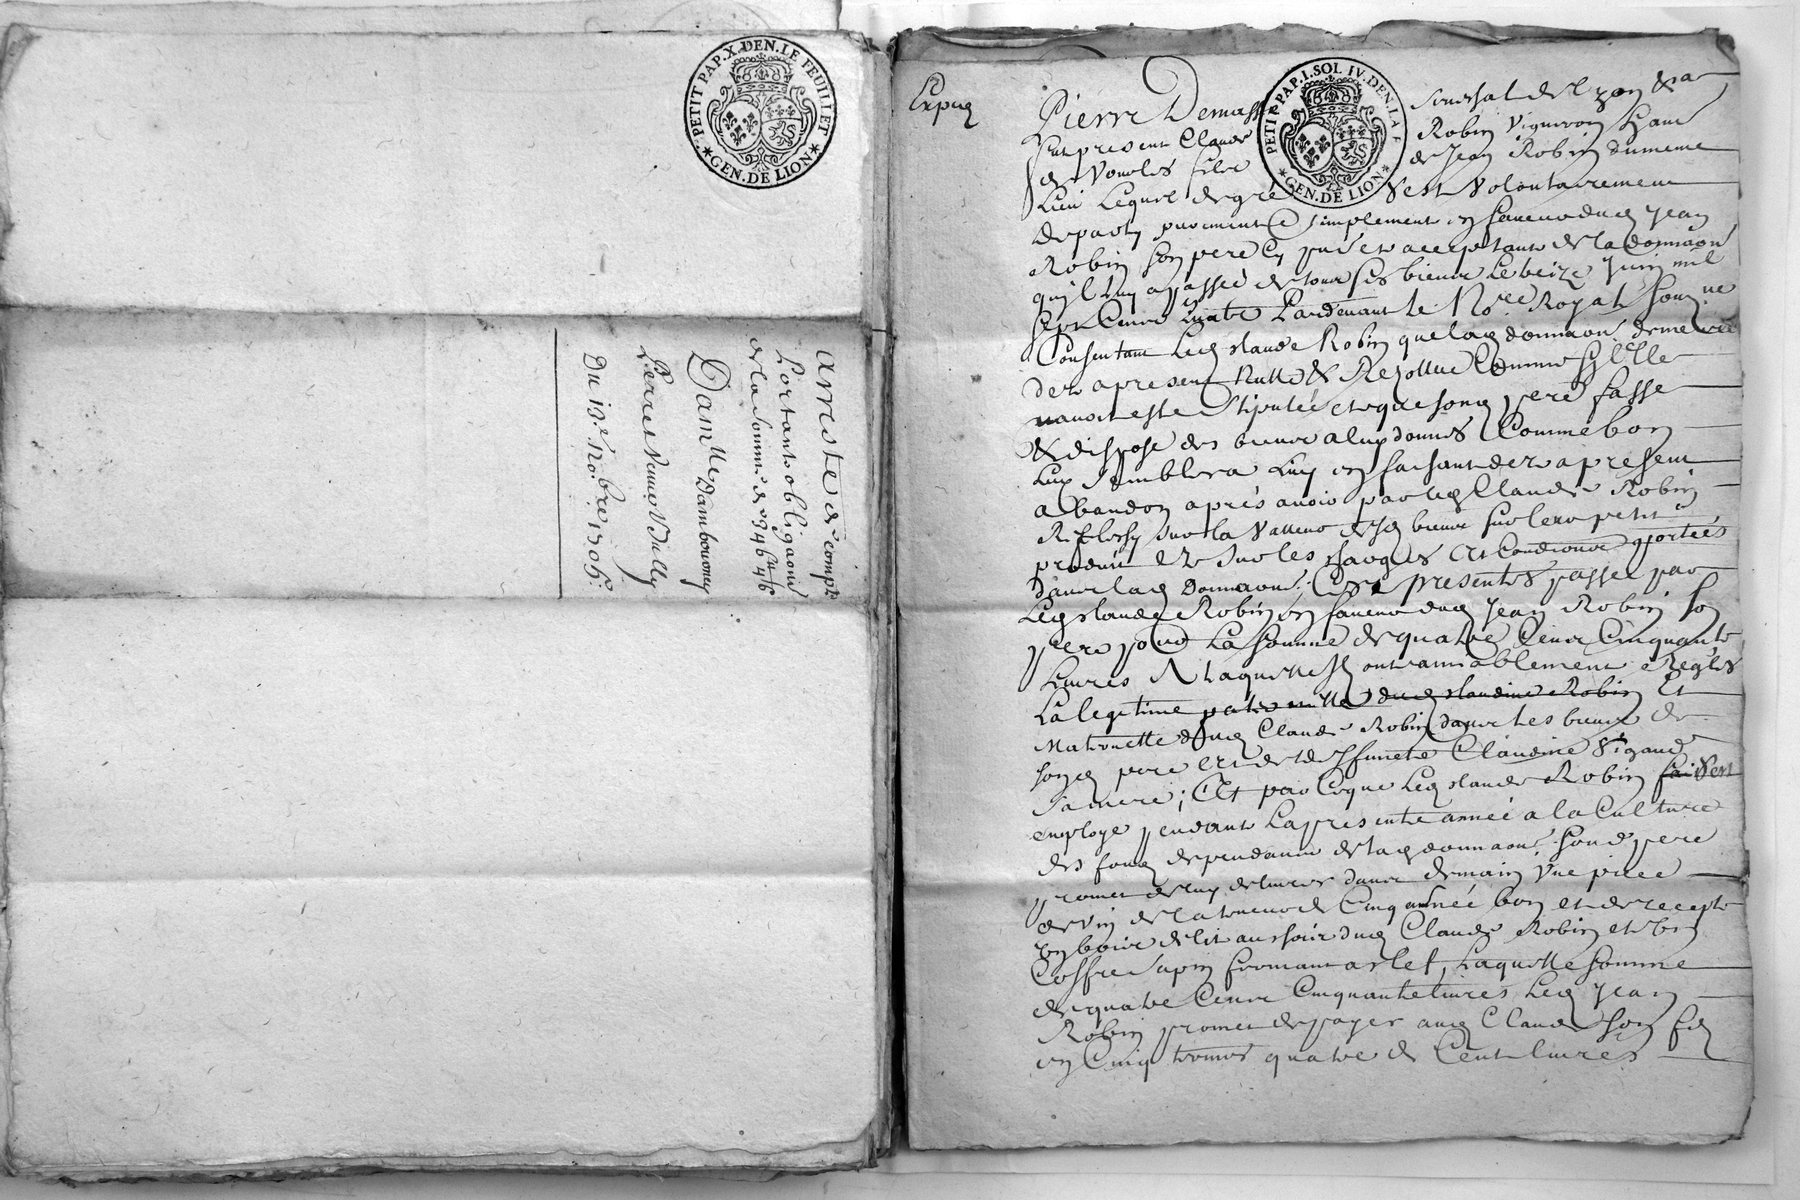 PETIT PAP. X. DEN. LE FEUILLET
GEN. DE LION
arreste de compte
Portant obligaōn
de la somme de 946ᵗᵗ 4ˢ 6
Damˡˡᵉ Dambourney
Perret Veuve Dully
Du 13ᵉ 9bre 1705.
Expᵉ
PETIT PAP. I. SOL IV. DEN. LA F
GEN. DE LION
Pierre Demass
fut present Claude Robin Vigneron
de Vourles fils de Jean Robin du meme
Lieu Lequel de gré s'est volontairement
departy purement & simplement en faveur dud Jean
Robin son pere cy pnt et acceptant de la donnaōn
qu'il luy a passée de tous ses biens le treize Juin mil
sept Cents quatre Pardevant le Noʳᵉ Royal soussⁿᵉ
Consentant Led Claude Robin que lad donnaōn demeure
dez a present Nulle & Resollue Comme sy Elle
navoit esté stipulée et que sond pere fasse
& dispose des biens a luy donnés Comme bon
Luy semblera Luy en faisant dez a present
abandon aprés avoir par led Claude Robin
Reflechy sur la Valleur desd biens sur leur petit
produit et sur les charges et conditions portées
dans lad Donnaōn. Ces presentes passée par
Led Claude Robin en faveur dud Jean Robin son
pere pour La somme de quatre Cents Cinquante
Livres A laquelle Ils ont amiablement Reglés
La legitime paternelle dud Claudine Robin Et
Maternelle dud Claude Robin dans les biens de
sond pere et de deffuncte Claudine Vigaud
sa mere; Et par ce que Led Claude Robin s'est
employé pendant La presente année a la Culture
des fonds dependants de lad donnaōn. Sond pere
promet de luy delivrer dans demain Une piece
de vin de la teneur de Cinq année bon et de recepte
un bois de lit au choix dud Claude Robin et un
Coffre sapin fermant a clef, Laquelle somme
de quatre Cents Cinquante livres Led Jean
Robin promet de payer aud Claude son fils
en Cinq termes quatre de Cent livres